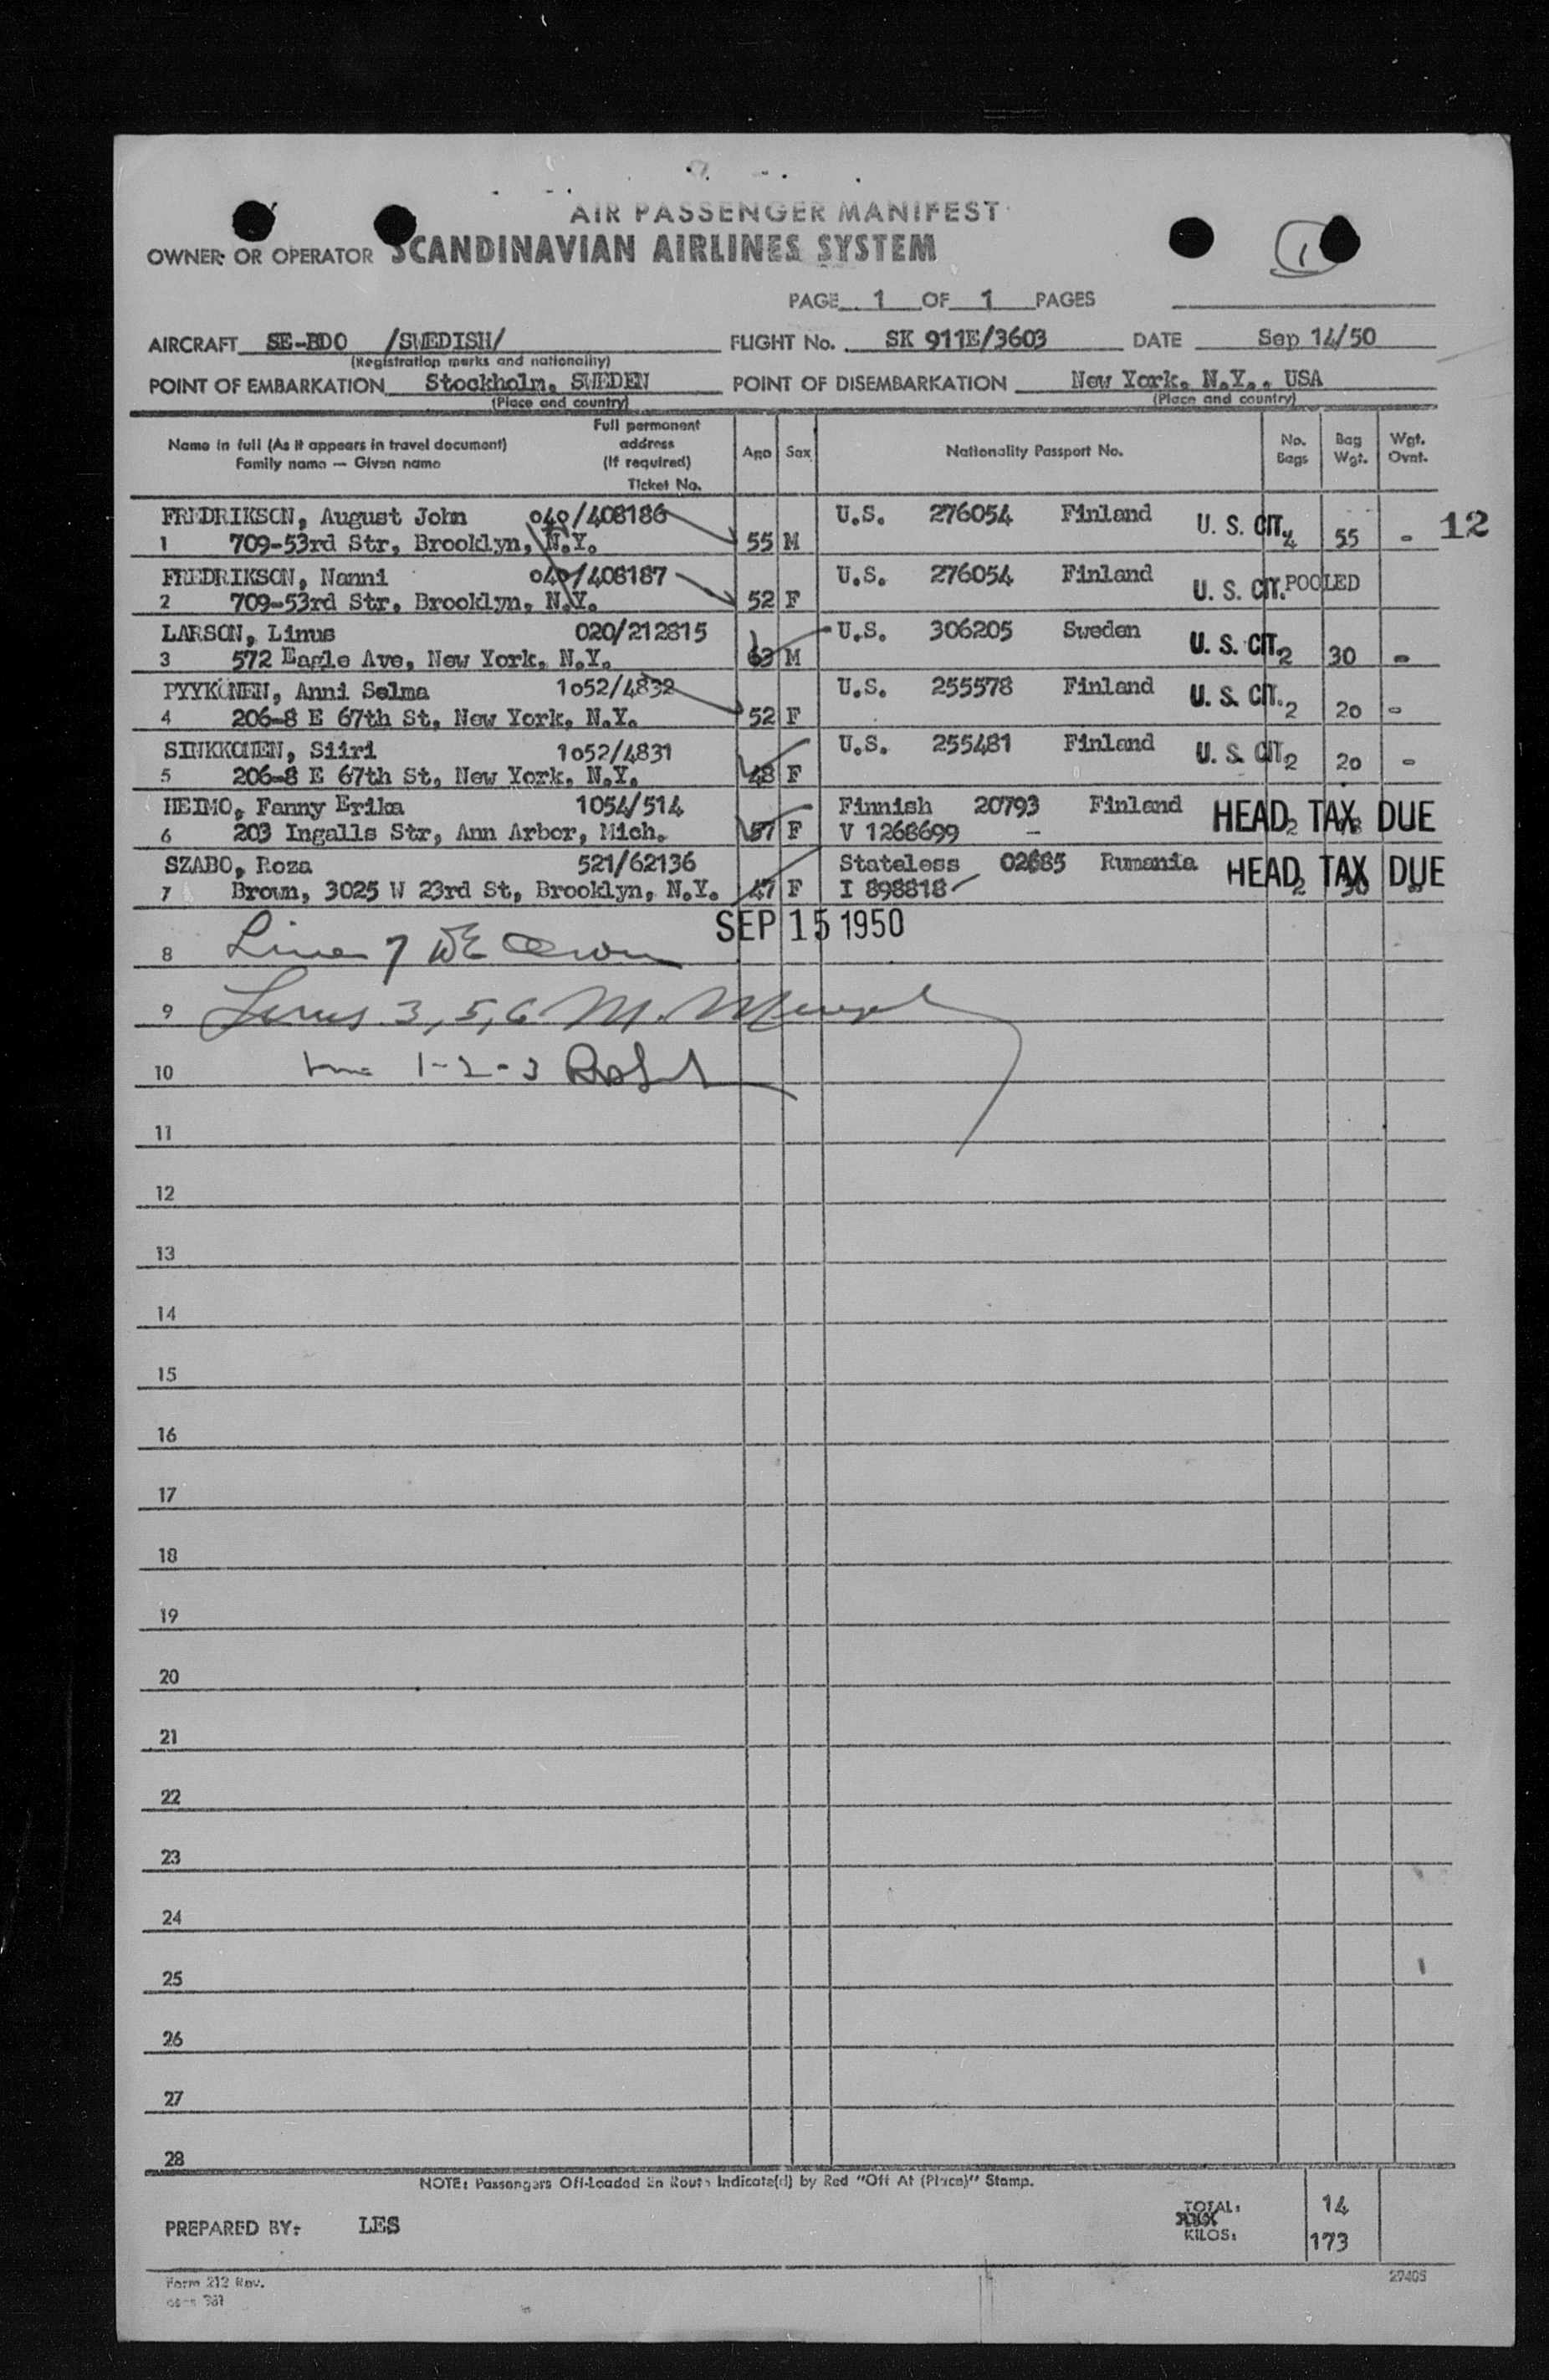 AIR PASSENGER MANIFEST
OWNER OR OPERATOR SCANDINAVIAN AIRLINES SYSTEM
1
PAGE 1 OF 1 PAGES
AIRCRAFT SE-BDO /SWEDISH/ FLIGHT No. SK 911E/3603 DATE Sep 14/50
(Registration marks and nationality)
POINT OF EMBARKATION Stockholm, SWEDEN POINT OF DISEMBARKATION New York, N.Y., USA
(Place and country) (Place and country)
Name in full (As it appears in travel document) Family name — Given name Full permanent address (If required) Ticket No. Age Sex Nationality Passport No. No. Bags Bag Wgt. Wgt. Ovnt.
FREDRIKSON, August John 040/408186 U.S. 276054 Finland U. S. CIT. 12
1 709-53rd Str, Brooklyn, N.Y. 55 M 4 55 -
FREDRIKSON, Nanni 040/408187 U.S. 276054 Finland U. S. CIT. POOLED
2 709-53rd Str, Brooklyn, N.Y. 52 F
LARSON, Linus 020/212815 U.S. 306205 Sweden U. S. CIT.
3 572 Eagle Ave, New York, N.Y. 63 M 2 30 -
PYYKÖNEN, Anni Selma 1052/4832 U.S. 255578 Finland U. S. CIT.
4 206-8 E 67th St, New York, N.Y. 52 F 2 20 -
SINKKONEN, Siiri 1052/4831 U.S. 255481 Finland U. S. CIT.
5 206-8 E 67th St, New York, N.Y. 48 F 2 20 -
HEIMO, Fanny Erika 1054/514 Finnish 20793 Finland HEAD TAX DUE
6 203 Ingalls Str, Ann Arbor, Mich. 57 F V 1268699 - 2
SZABO, Roza 521/62136 Stateless 02685 Rumania HEAD TAX DUE
7 Brown, 3025 W 23rd St, Brooklyn, N.Y. 47 F I 898818 2 30
SEP 15 1950
8 Line 7
9 Lines 3, 5, 6 M.
10 1-2-3
11
12
13
14
15
16
17
18
19
20
21
22
23
24
25
26
27
28
NOTE: Passengers Off-Loaded En Route Indicate(d) by Red "Off At (Place)" Stamp.
TOTAL: 14
PREPARED BY: LES KILOS: 173
Form 212 Rev. 27405